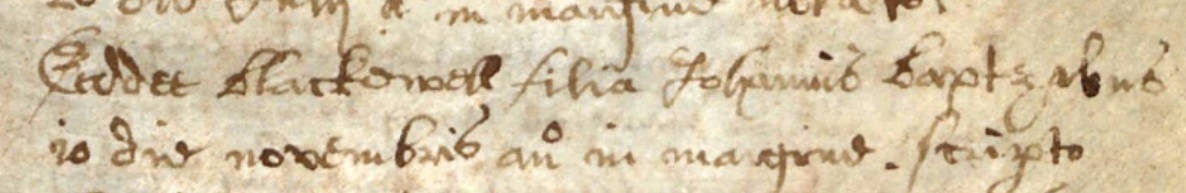 in margine
Eeddee Blackewell filia Johannis Baptz
10 die novembris an° in margine. scripto